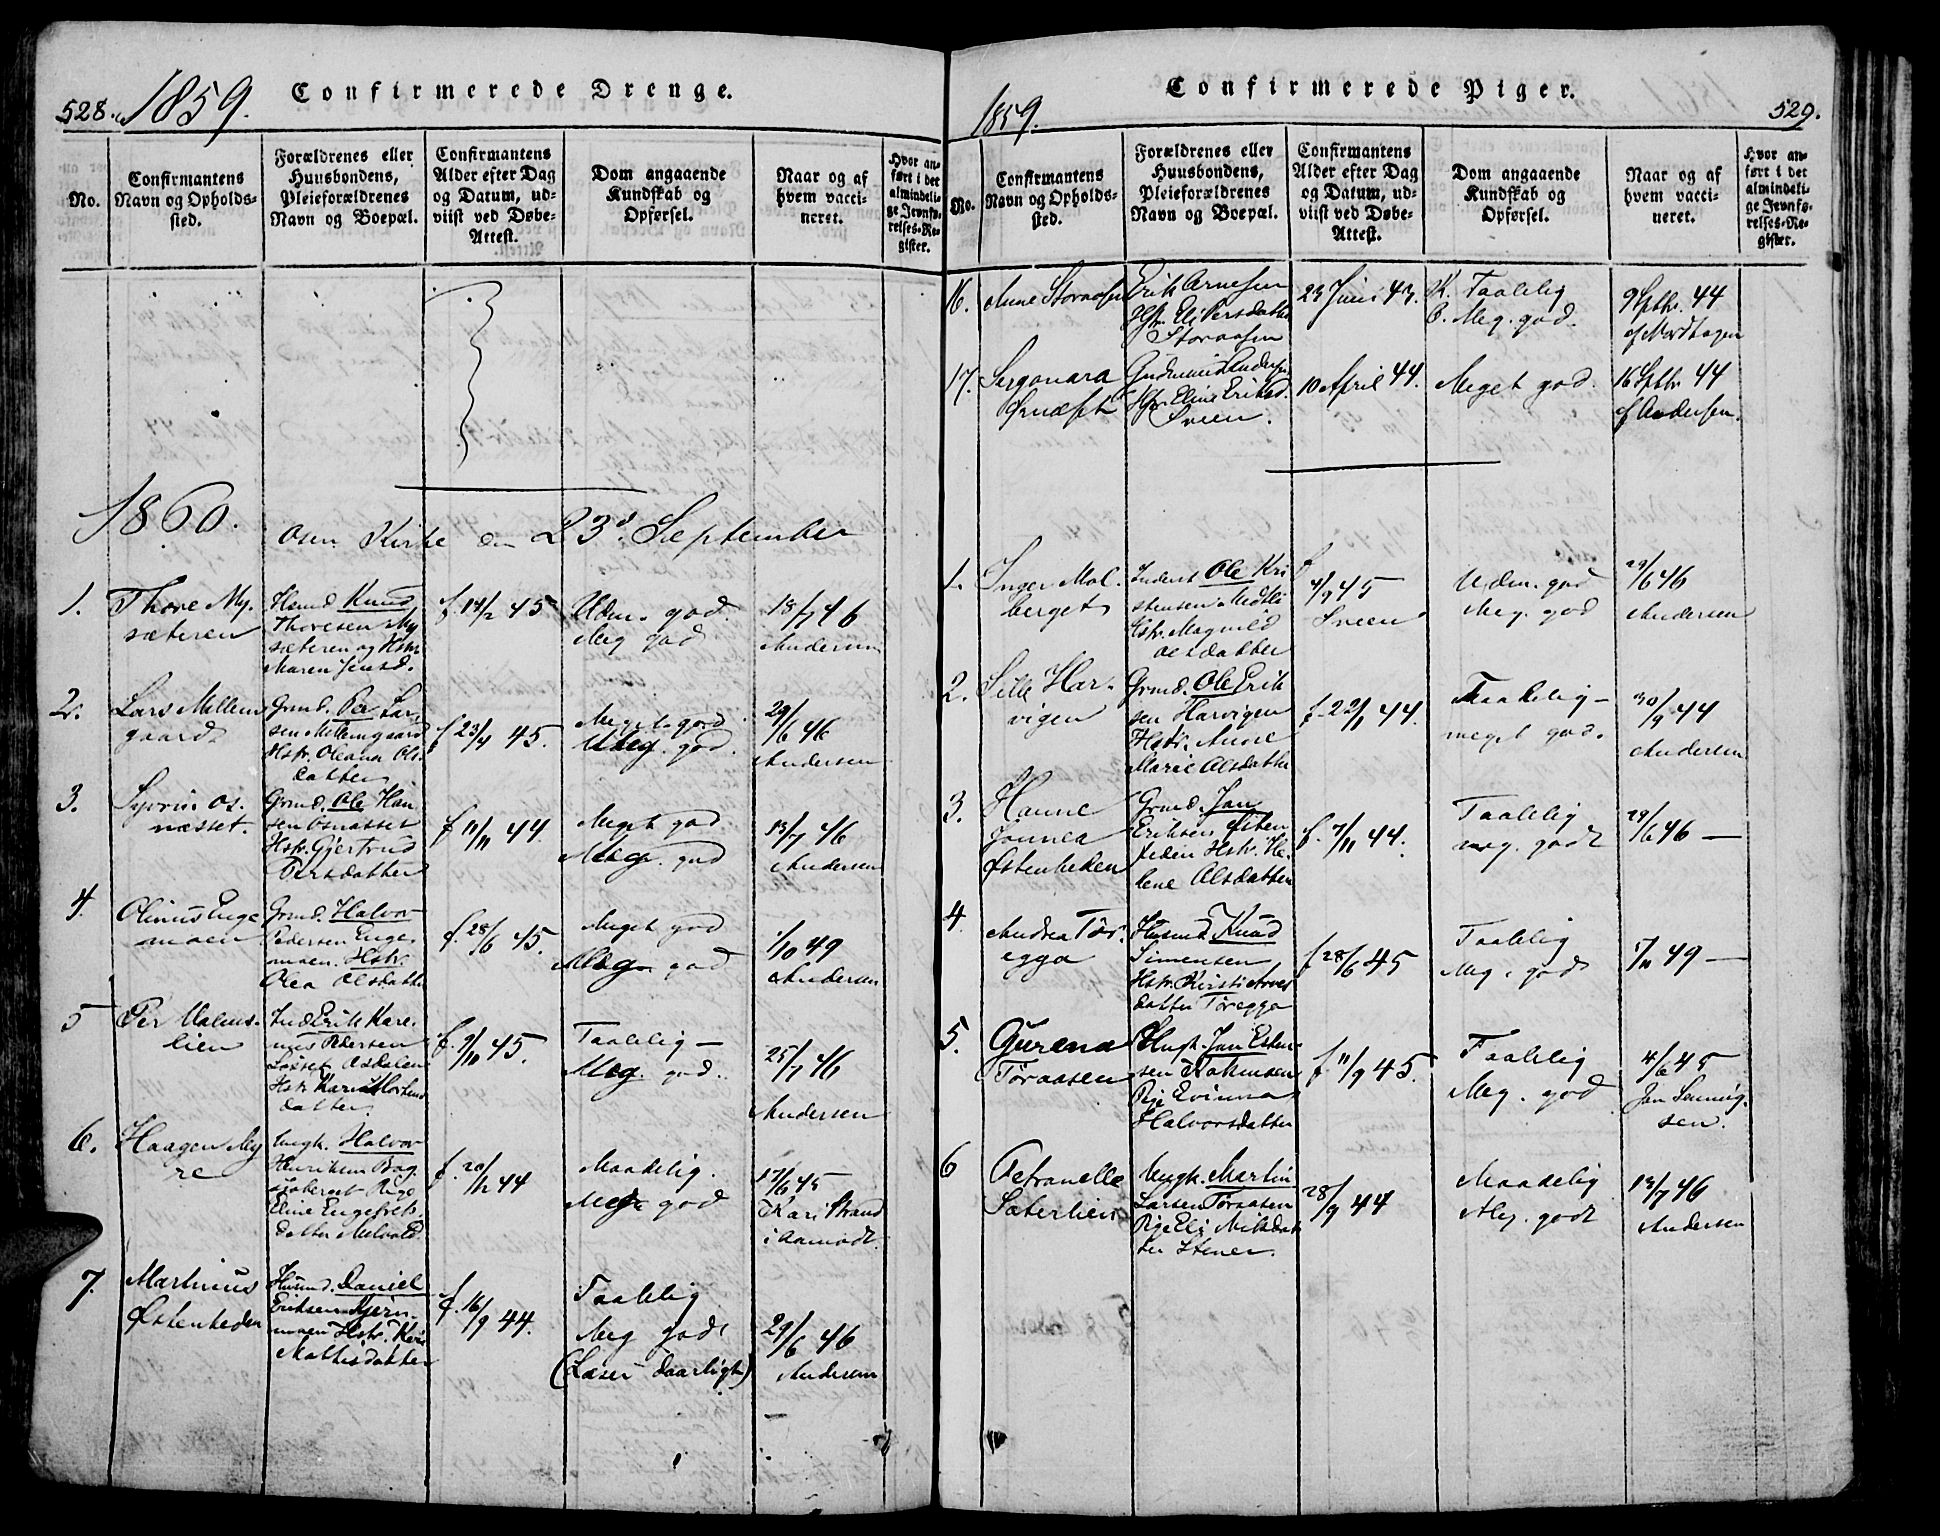 528.
1859.
Confirmerede Drenge.
No.
Confirmantens
Navn og Opholds-
sted.
Forældrenes eller
Huusbondens,
Pleieforældrenes
Navn og Boepæl.
Confirmantens
Alder efter Dag
og Datum, ud-
viist ved Døbe-
Attest.
Dom angaaende
Kundskab og
Opførsel.
Naar og af
hvem vacci-
neret.
Hvor an-
ført i det
almindeli-
ge Jevnfø-
relses-Re-
gister.
1860.
Osen Kirke den 23d September
1.
Thore My-
sæteren
Huusmd. Knud
Thoresen My
sæteren og Hstr.
Maren Jensd.
f. 14/2 45
Udm. god.
Meg god
18/7 46
Andersen
2.
Lars Mellem
gaard
Grmd. Per Lar-
sen Mellemgaard
Hstr. Oleana Ols-
datter
f 23/4 45.
Meget god
Meg. god.
29/6 46
Andersen
3.
Syverin Os-
næsset.
Grmd. Ole Han-
sen Osnæsset
Hstr. Gjertrud
Persdatter
f 11/11 44.
Meget god
Meg. god
13/7 46
Andersen
4.
Olinus Enge
moen
Grmd. Halvor
Pedersen Enge-
moen. Hstr.
Olea Olsdatter
f. 28/6 45.
Meget god
Meg god
1/10 49
Andersen
5
Per Malms-
lien
Ind Erik Kare-
nus Pedersen
Løsset Osdalen
Hstr. Kari Mortens
datter.
f. 9/11 45.
Taalelig —
Meg. god.
25/7 46
Andersen
6.
Haagen My
re
Ungk. Halvor
Henriksen Bag-
Pige
Eline Engebrets-
datter
f. 20/12 44
Maadelig.
Meg god
17/6 45
Kari Strand
i Aamodt.
7.
Martinus
Østenheden
Husmd. Daniel
Eriksen Bjørn-
moen Hstr. Kari
Mathisdatter
f. 16/9 44.
Taalelig
Meg god
(Læser daarligt)
29/6 46
Andersen
1859.
Confirmerede Piger.
529.
No.
Confirmantens
Navn og Opholds-
sted.
Forældrenes eller
Huusbondens,
Pleieforældrenes
Navn og Boepæl.
Confirmantens
Alder efter Dag
og Datum, ud-
viist ved Døbe-
Attest.
Dom angaaende
Kundskab og
Opførsel.
Naar og af
hvem vacci-
neret.
Hvor an-
ført i det
almindeli-
ge Jevnfø-
relses-Re-
gister.
16.
Anne Storaasen
Erik Arnesen
Hstr. Eli Persdatter
Storaasen
23 Juni 43.
K. Taalelig
O. Meg. god.
9 Sptbr. 44
af Nordhagen
17.
Gudmund Andersen
Hstr. Eline Eriksd.
Sveen.
10 April 44.
Meget god.
16 Sptbr 44
af Andersen.
1.
Inger Mol-
berget
Inderst Ole Kri
stensen Medtli
Hstr. Magnild
Olsdatter
f 4/9 45
Sveen
Udm. god
Meg. god
29/6 46
Andersen
2.
Sille Har-
vigen
Grmd. Ole Erik
sen Harvigen
Hstr. Anne
Marie Olsdatter
f. 22/1 44.
Taalelig —
meget god.
30/9 44
Andersen
3.
Hanne
Jonnea
Østenheden
Grmd. Jan
Eriksen Østen-
heden Hstr. He-
lene Olsdatter
f. 7/11 44.
Taalelig
meg. godt
29/6 46 —
4
Andrea Tør-
egga
Husmd. Knud
Simensen
Hstr. Kirsti Arnes
datter Tøregga
f 28/6 45
Taalelig
Meg. godt
5/11 49 —
5.
Gurena
Tøraasen
Ungk. Jan Esten-
sen
Pige
Halvorsdatter
f 11/9 45.
Taalelig
Meg. god
4/6 45
Jan
sen.
6
Petronelle
Sæterlien
Ungk. Martin
Larsen Tøraasen
Pige Eli Nilsdat
ter Stener.
28/9 44
Maadelig
Meg. godt
13/7 46
Andersen